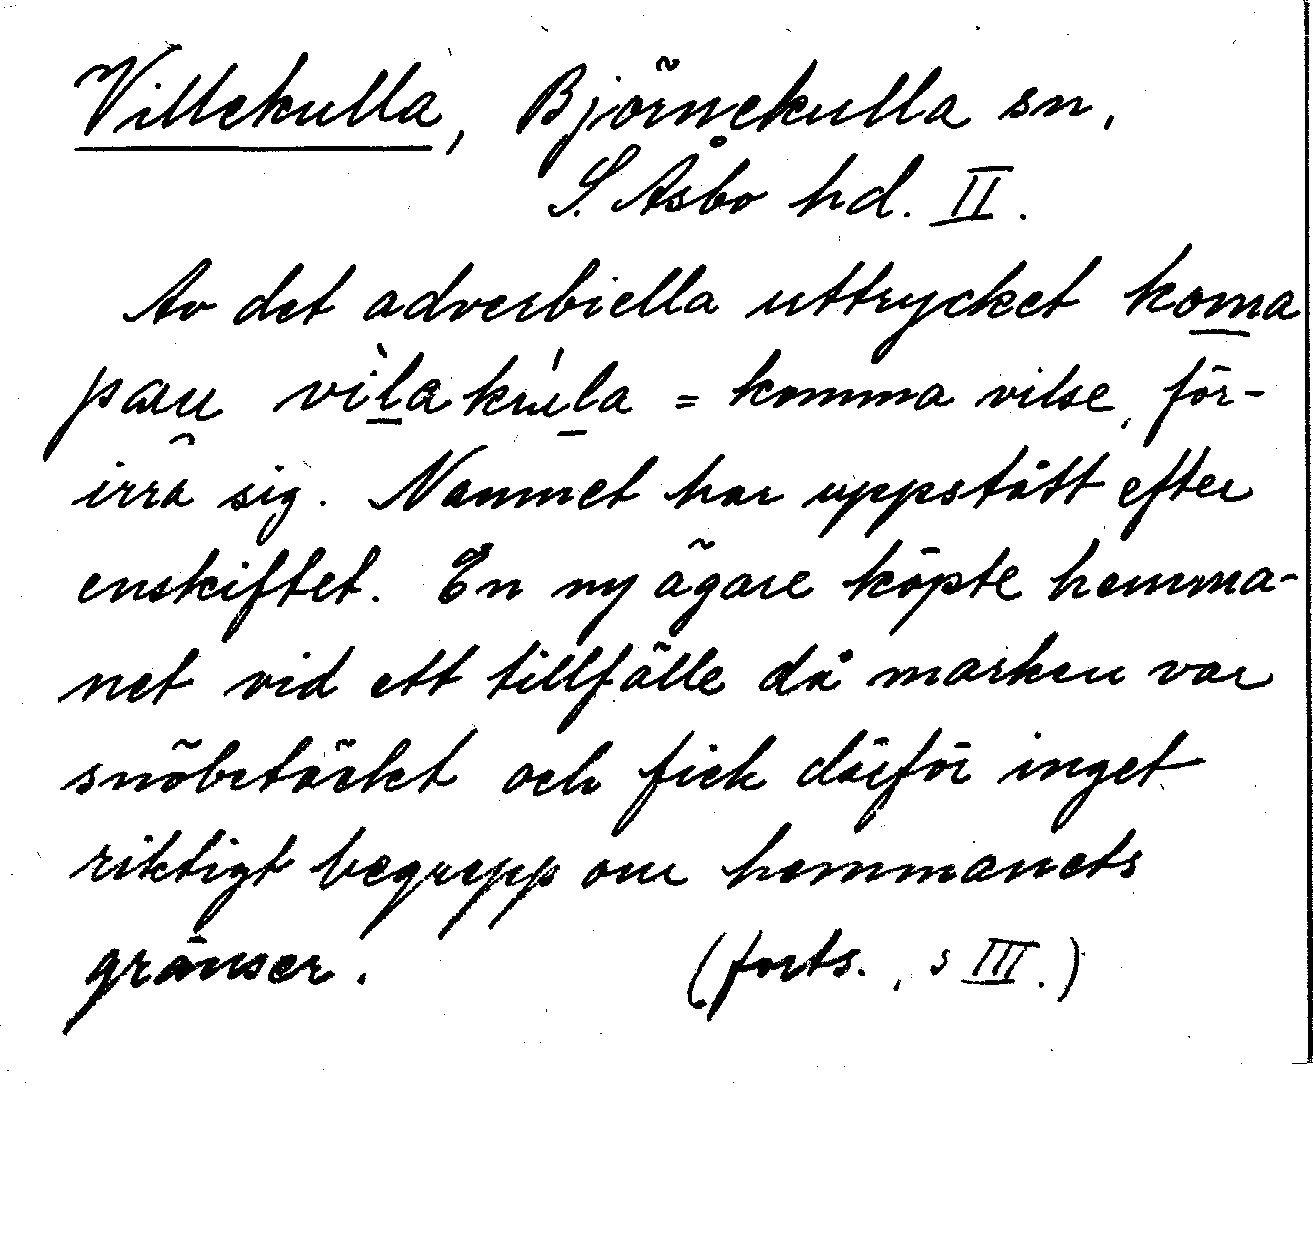 Villekulla, Björnekulla sn,
S. Åsbo hd. II.
Av det adverbiella uttrycket koma
pau vìlakúla = komma vilse, för-
irra sig. Namnet har uppstått efter
enskiftet. En ny ägare köpte hemma-
net vid ett tillfälle då marken var
snöbetäckt och fick därför inget
riktigt begrepp om hemmanets
gränser. (forts., s III.)